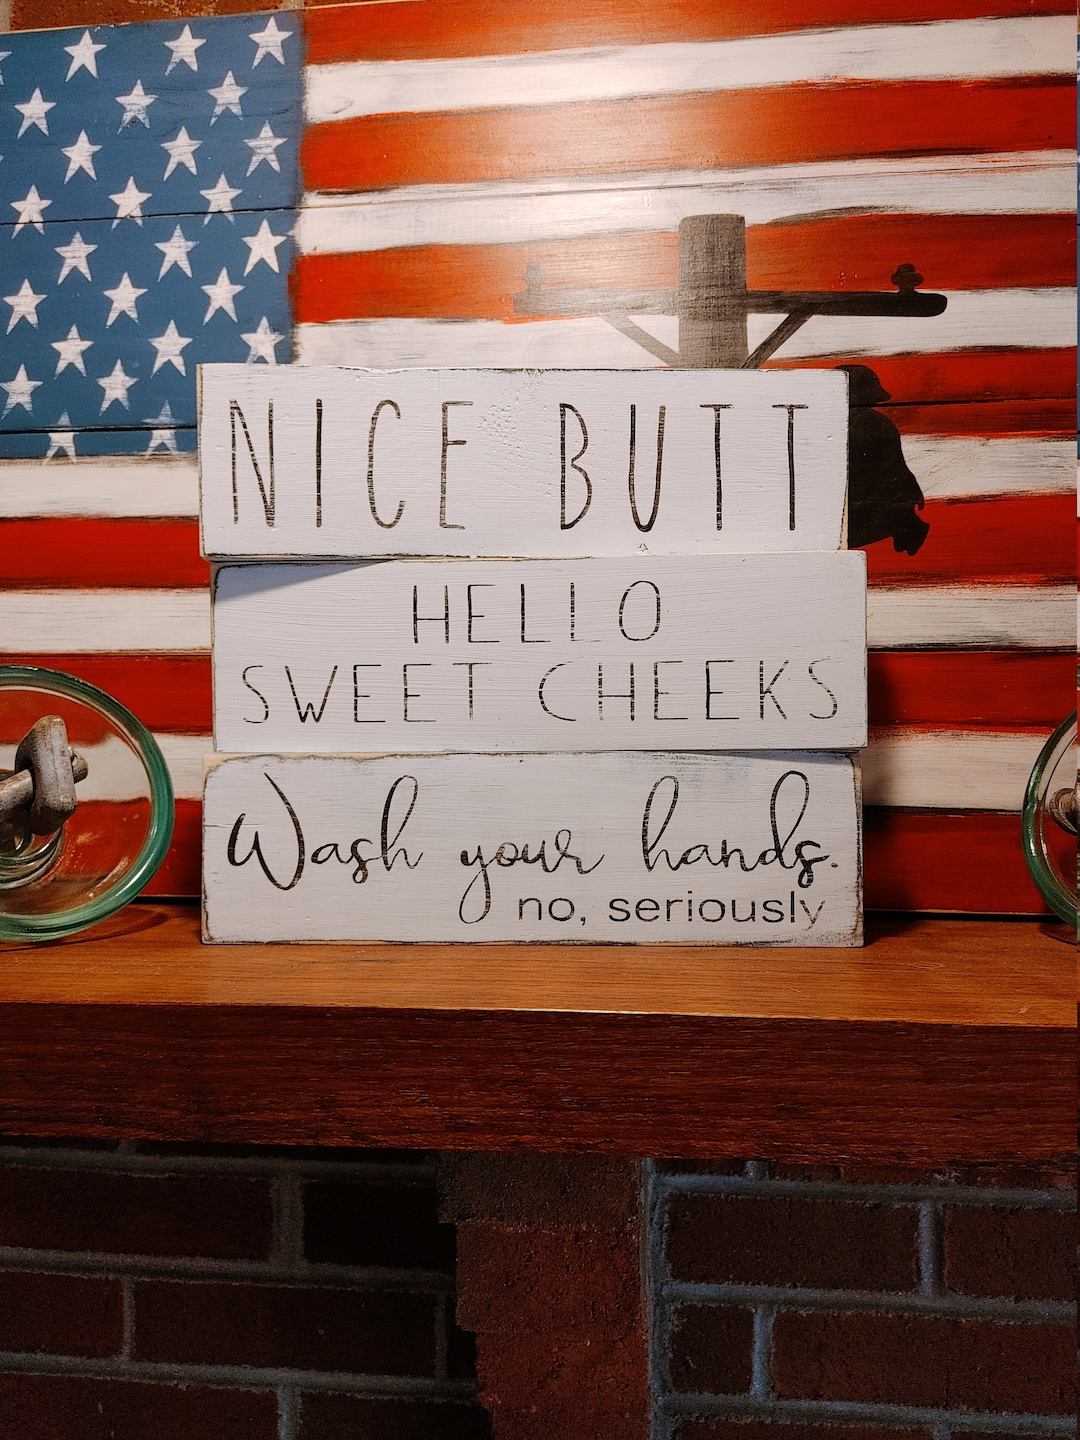 NICE BUTT
HELLO
SWEET CHEEKS
Wash your hands.
no, seriously